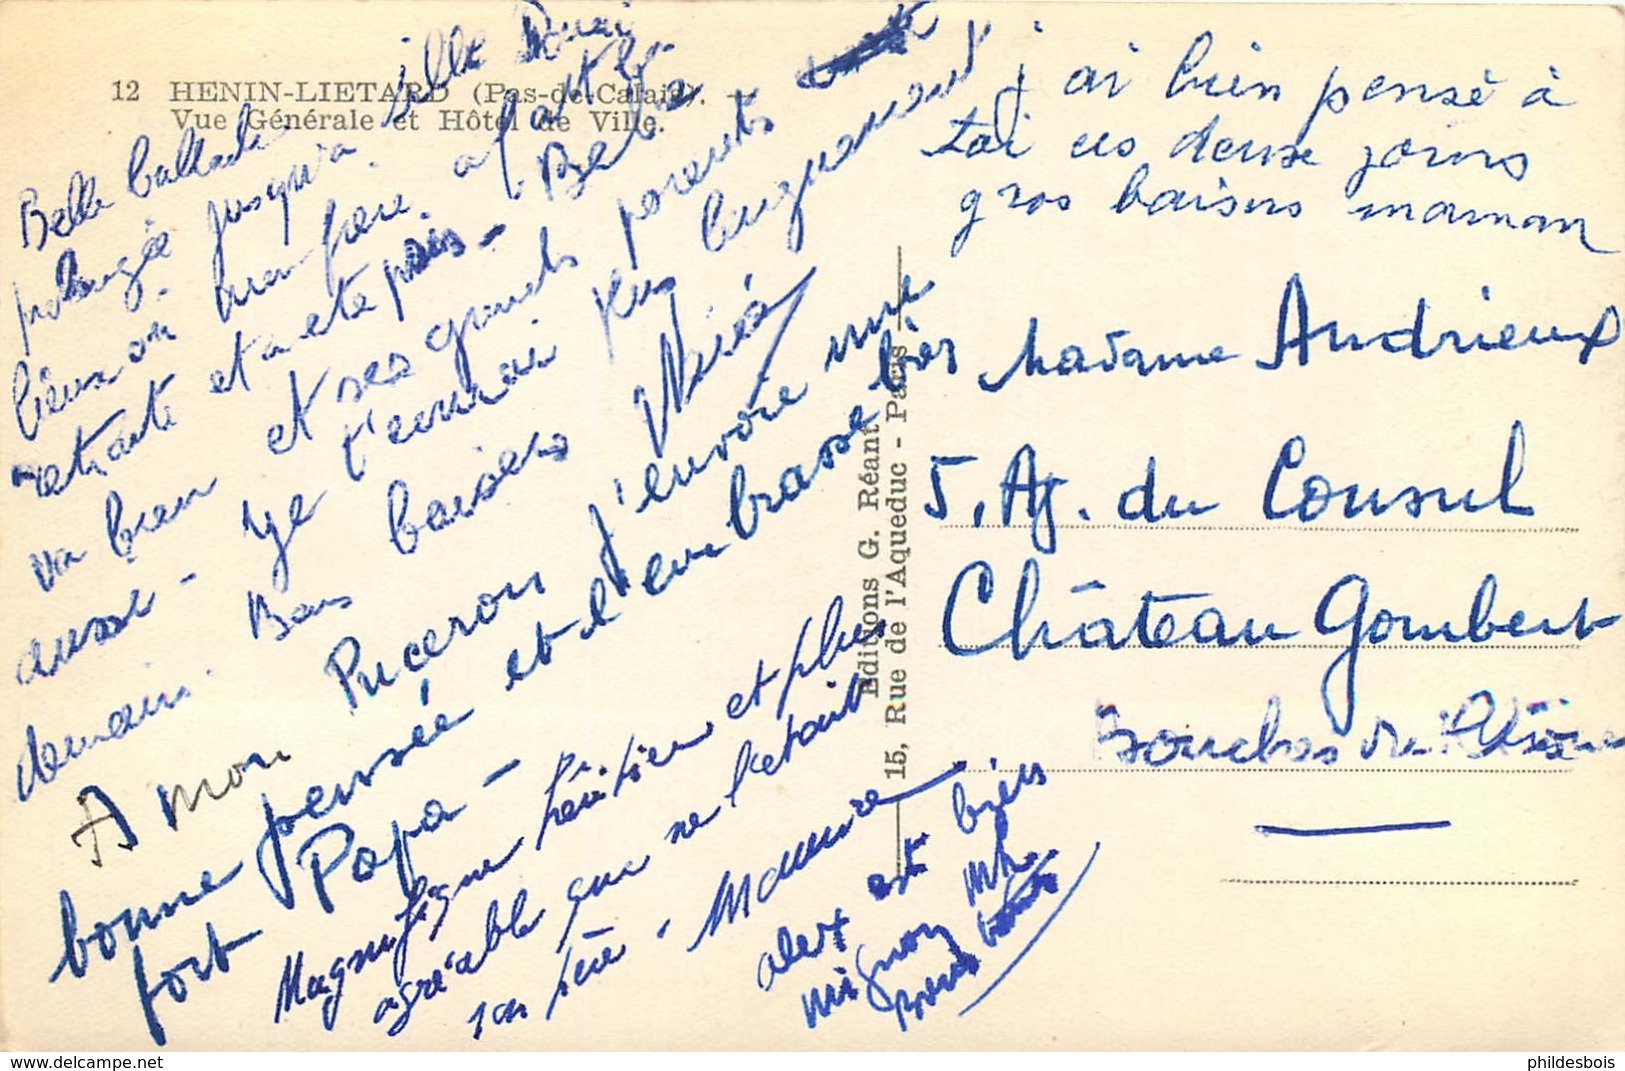 12 HENIN-LIETARD (Pas-de-Calais). —
Vue Générale et Hôtel de Ville.
Belle ballade
prolongée jusqu'à
lieux où mon père a
retraite et a été pris - Bébé
va bien et ses grands parents
aussi - Je t'écrirai plus longuement
demain. Bons baisers
A mon Puceron j'envoie une
bonne pensée et l'embrasse bien
fort Papa -
Magnifique héritier et plus
agréable que ne l'était
son père -
alex est très
mignon
j'ai bien pensé à
toi ces deux jours
gros baisers maman
Madame Andrieux
5, Av. du Consul
Château Gombert
Bouches du Rhône
Editions G. Réant
15, Rue de l'Aqueduc - Paris
delcampe.net
phildesbois